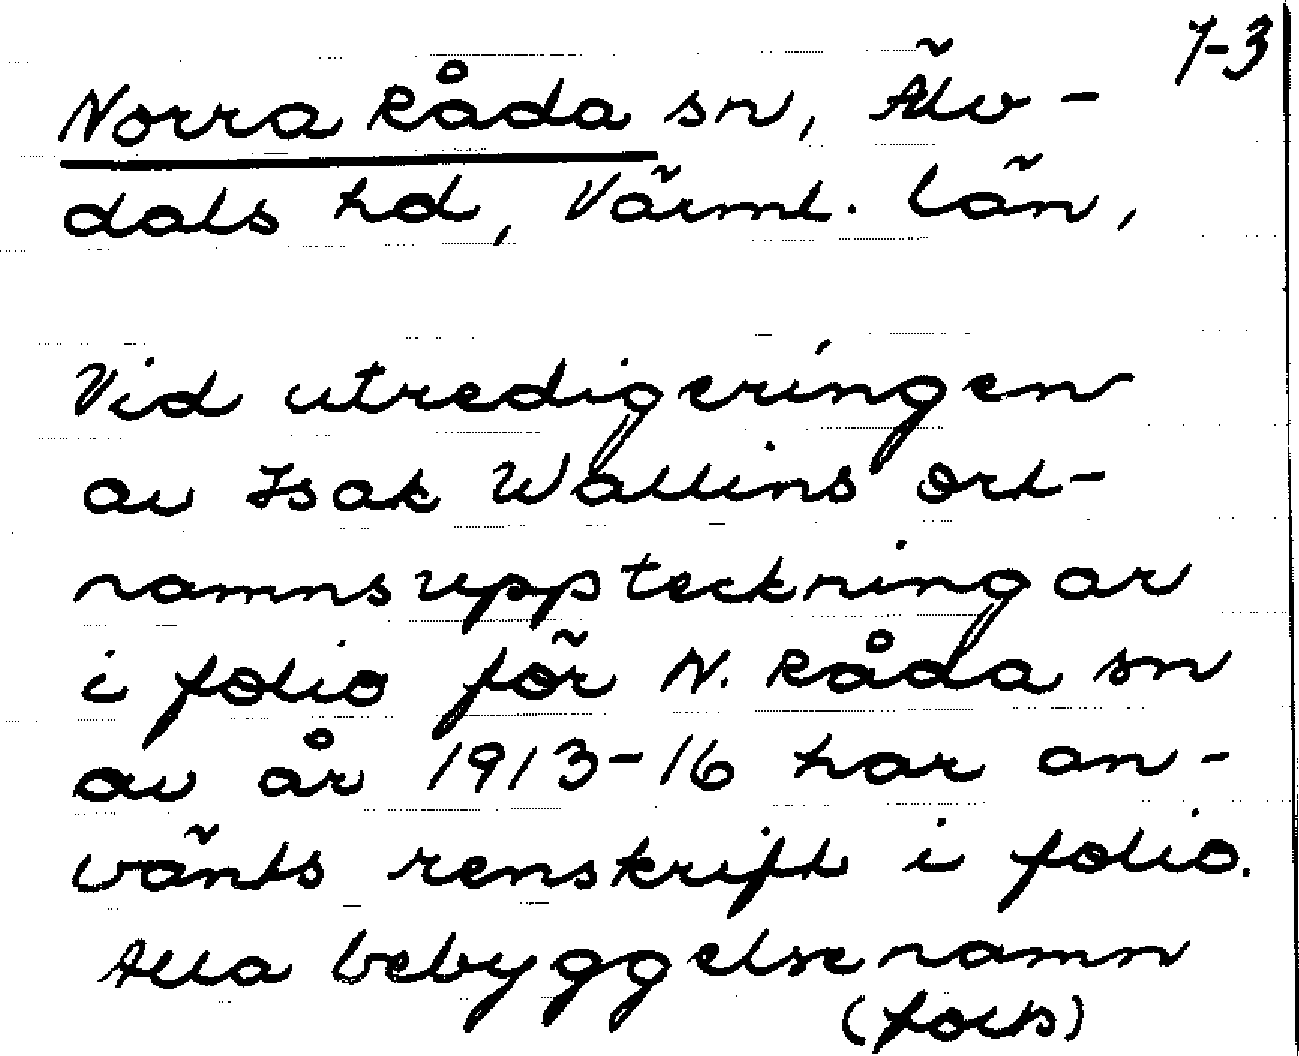 7-3
Norra Råda sn, Älv-
dals hd, Värml. län,
Vid utredigeringen
av Isak Wallins ort-
namnsuppteckningar
i folio för N. Råda sn
av år 1913-16 har an-
vänts renskrift i folio.
Alla bebyggelsenamn
(forts)